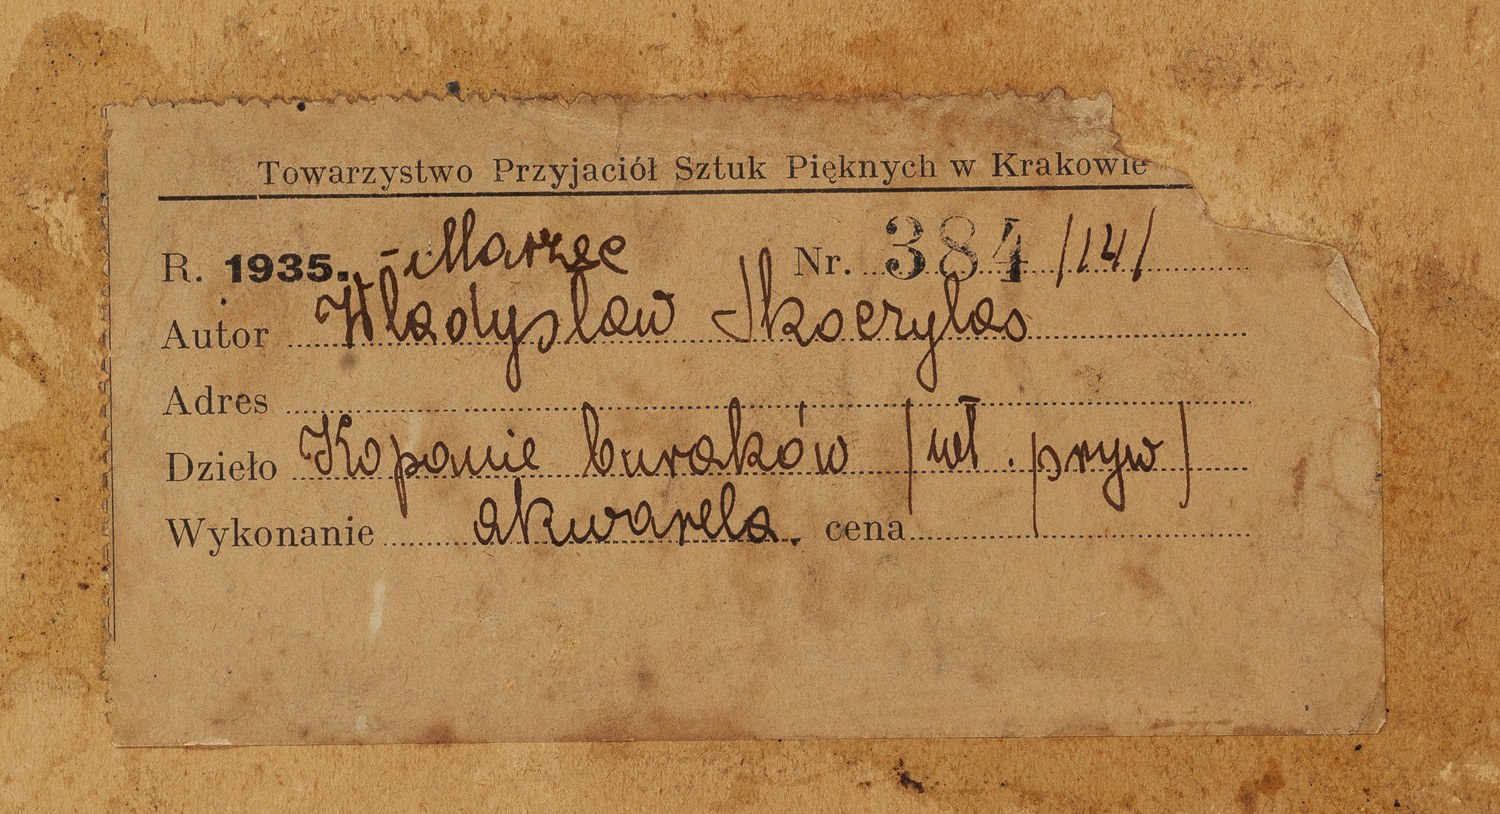 Towarzystwo Przyjaciół Sztuk Pięknych w Krakowie
R. 1935. - Marzec Nr. 384 /14/
Autor Władysław Skoczylas
Adres
Dzieło Kopanie buraków (wł. pryw)
Wykonanie akwarela. cena